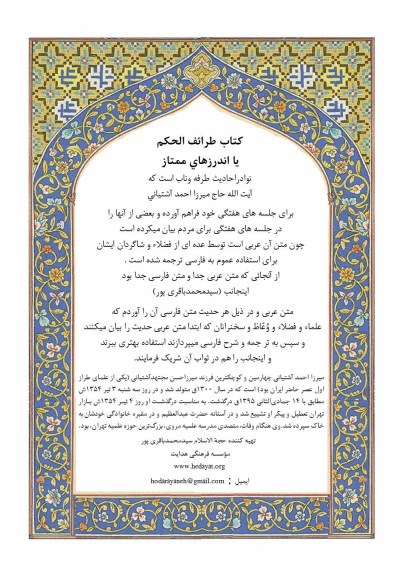 كتاب طرائف الحكم
يا اندرزهاي ممتاز
نوادراحاديث طرفه وناب است كه
آيت الله حاج ميرزا احمد آشتياني
براي جلسه هاي هفتگي خود فراهم آورده و بعضي از آنها را
در جلسه هاي هفتگي براي مردم بيان ميكرده است
چون متن آن عربي است توسط عده اي از فضلاء و شاگردان ايشان
براي استفاده عموم به فارسي ترجمه شده است .
از آنجائي كه متن عربي جدا و متن فارسي جدا بود
اينجانب (سيدمحمدباقري پور)
متن عربي و در ذيل هر حديث متن فارسي آن را آوردم كه
علماء و فضلاء و وُعّاظ و سخنرانان كه ابتدا متن عربي حديث را بيان ميكنند
و سپس به تر جمه و شرح فارسي ميپردازند استفاده بهتري ببرند
و اينجانب را هم در ثواب آن شريك فرمايند.
میرزا احمد آشتیانی چهارمین و کوچکترین فرزند میرزاحسن مجتهدآشتیانی (یکی از علمای طراز
اول عصر حاضر ایران بود) است که در سال ۱۳۰۰ق متولد شد و در روز سه شنبه ۳ تیر ۱۳۵۴ش
مطابق با ۱۴ جمادی‌الثانی ۱۳۹۵ق درگذشت. به مناسبت درگذشت او روز ۴ تیر ۱۳۵۴ش بازار
تهران تعطیل و پیکر او تشییع شد و در آستانه حضرت عبدالعظیم و در مقبره خانوادگی خودشان به
خاک سپرده شد. وی هنگام وفات، متصدی مدرسه علمیه مروی، بزرگ‌ترین حوزه علمیه تهران، بود.
تهیه کننده حجة الاسلام سیدمحمدباقری پور
مؤسسه فرهنگی هدایت
www.hedayat.org
ایمیل : hodarayaneh@gmail.com